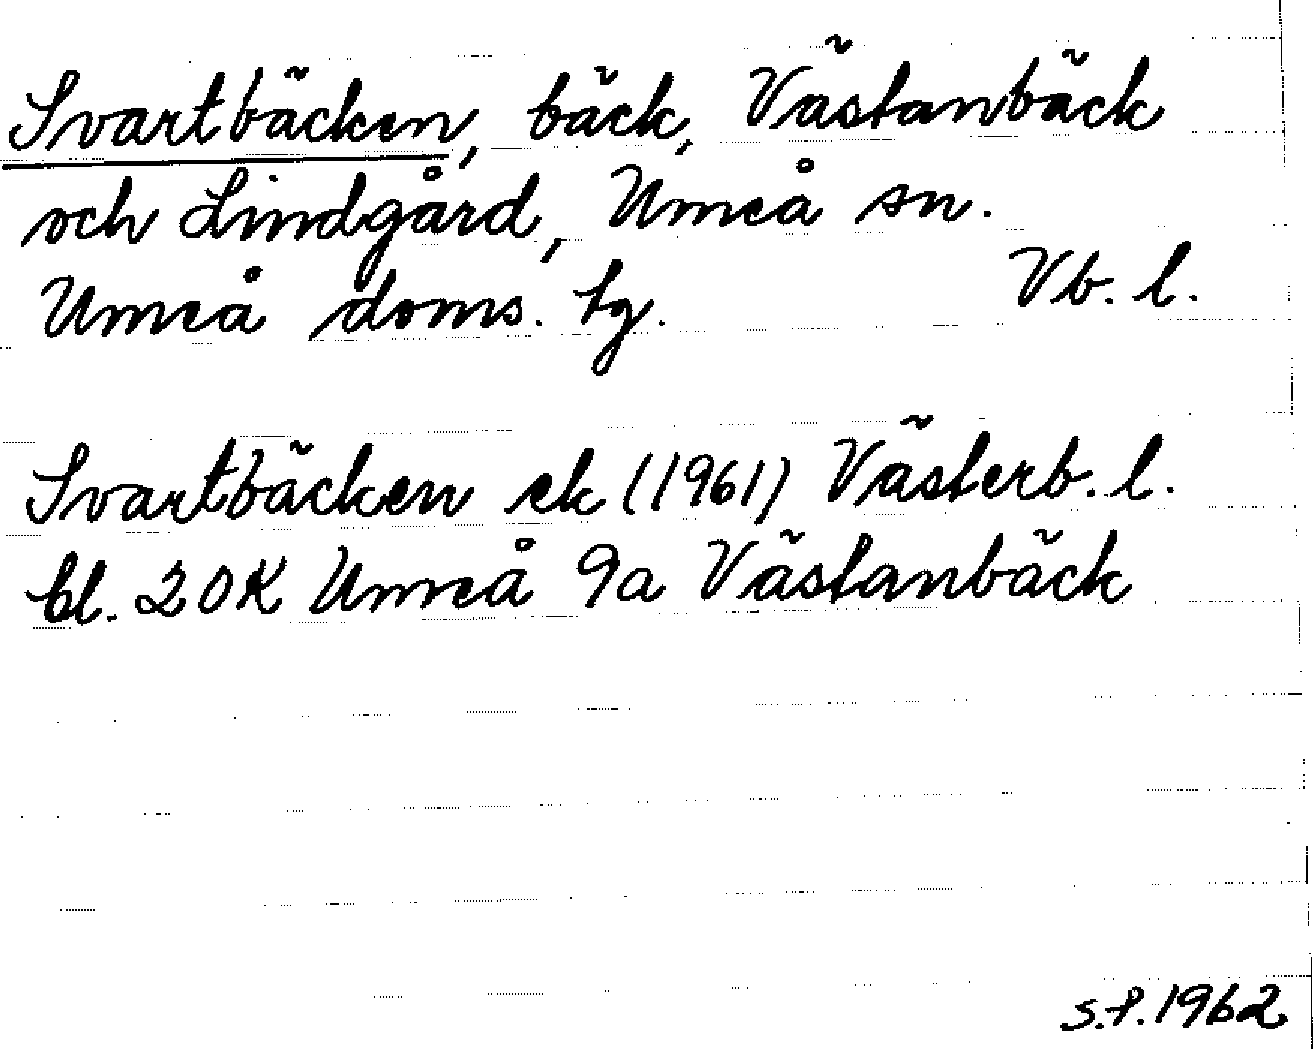 Svartbäcken, bäck, Västanbäck
och Lindgård, Umeå sn.
Umeå doms. tg. Vb. l.
Svartbäcken ek (1961) Västerb. l.
bl. 20K Umeå 9a Västanbäck
S.P. 1962